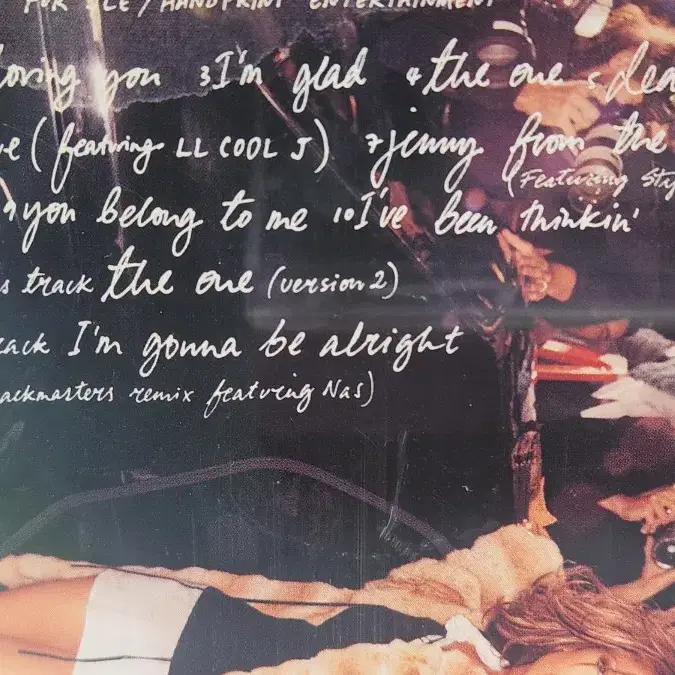 FOR JLE/HANDPRINT ENTERTAINMENT
loving you 3 I'm glad 4 the one 5 dea
e (featuring LL COOL J) 7 jenny from the
(Featuring Sty
9 you belong to me 10 I've been thinkin'
s track the one (version 2)
rack I'm gonna be alright
ackmasters remix featuring Nas)